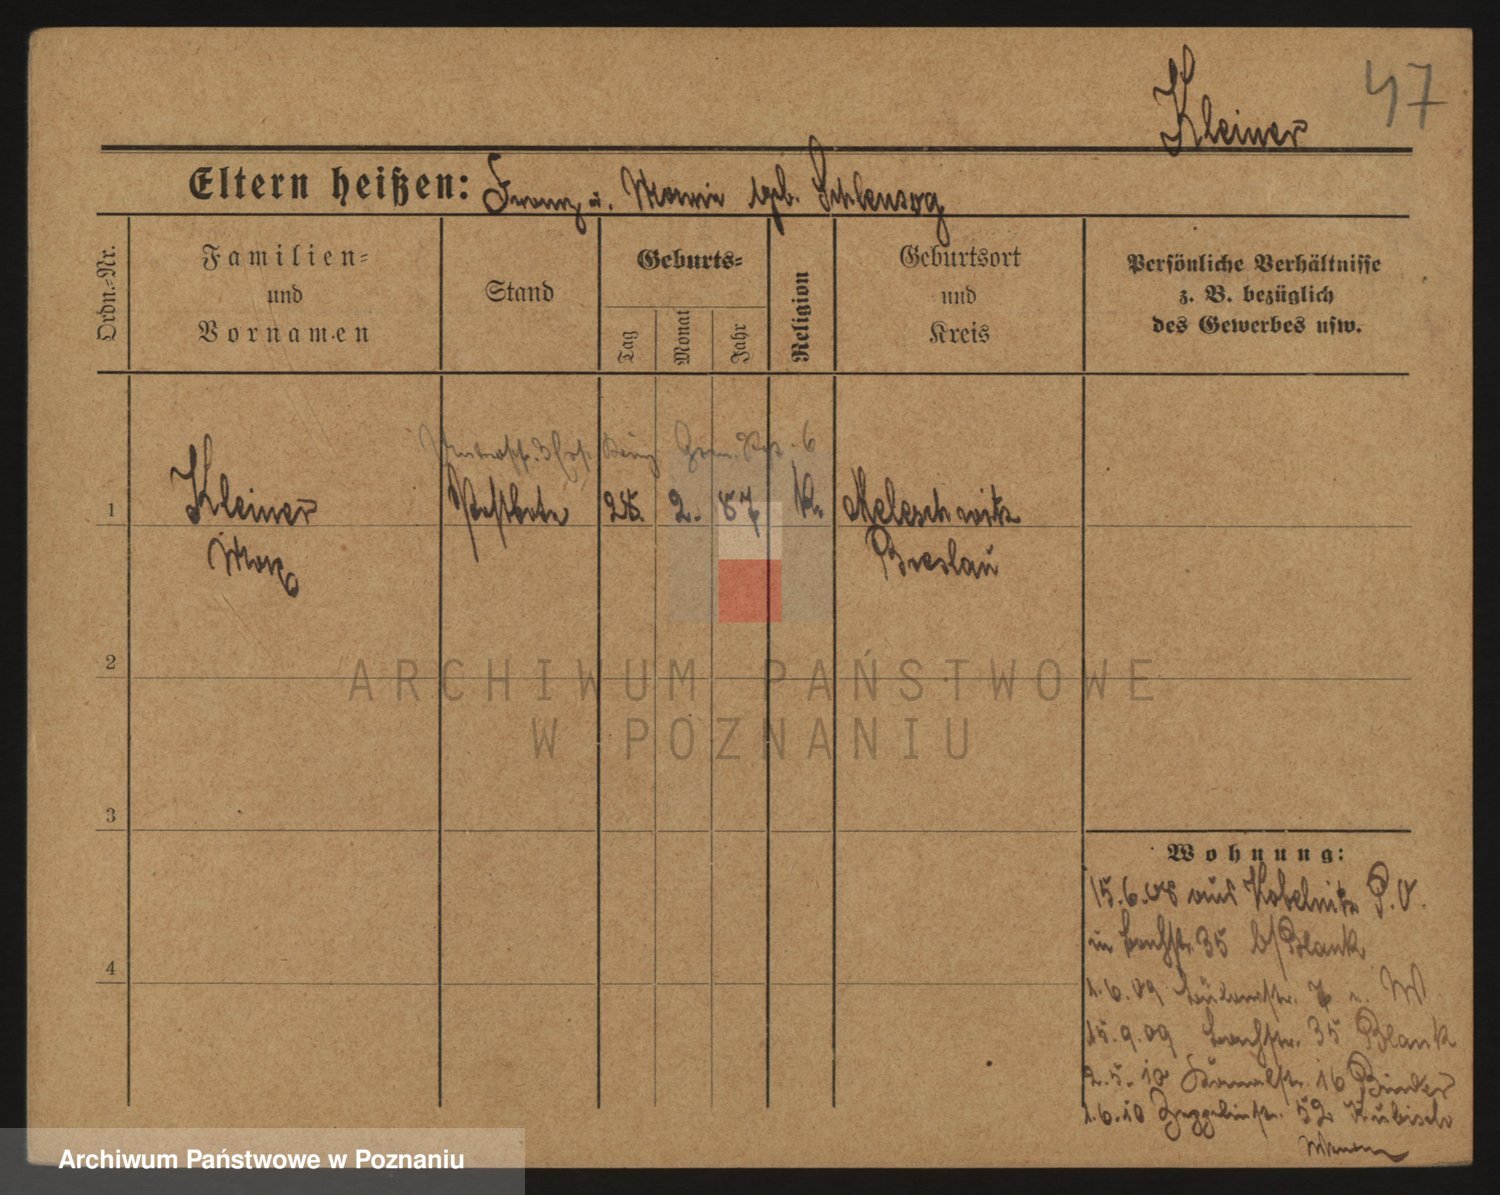 47
Kleiner
Eltern heißen: Franz u. Maria geb. Schlensog
Ordn.-Nr.
Familien-
und
Vornamen
Stand
Geburts-
Tag
Monat
Jahr
Religion
Geburtsort
und
Kreis
Persönliche Verhältnisse
z. B. bezüglich
des Gewerbes usw.
6
1
Kleiner
Max
Postbote
28. 2. 87
K.
Meleschwitz
Breslau
2
ARCHIWUM PAŃSTWOWE
W POZNANIU
3
4
Wohnung:
15.6.08 aus Kobelnitz P.O.
in Bachstr. 35 b/Blank
1.6.09 7
15.9.09 Bachstr. 35 Blank
2.5.10 16 Binder
1.6.10 52 Kubisch
Archiwum Państwowe w Poznaniu